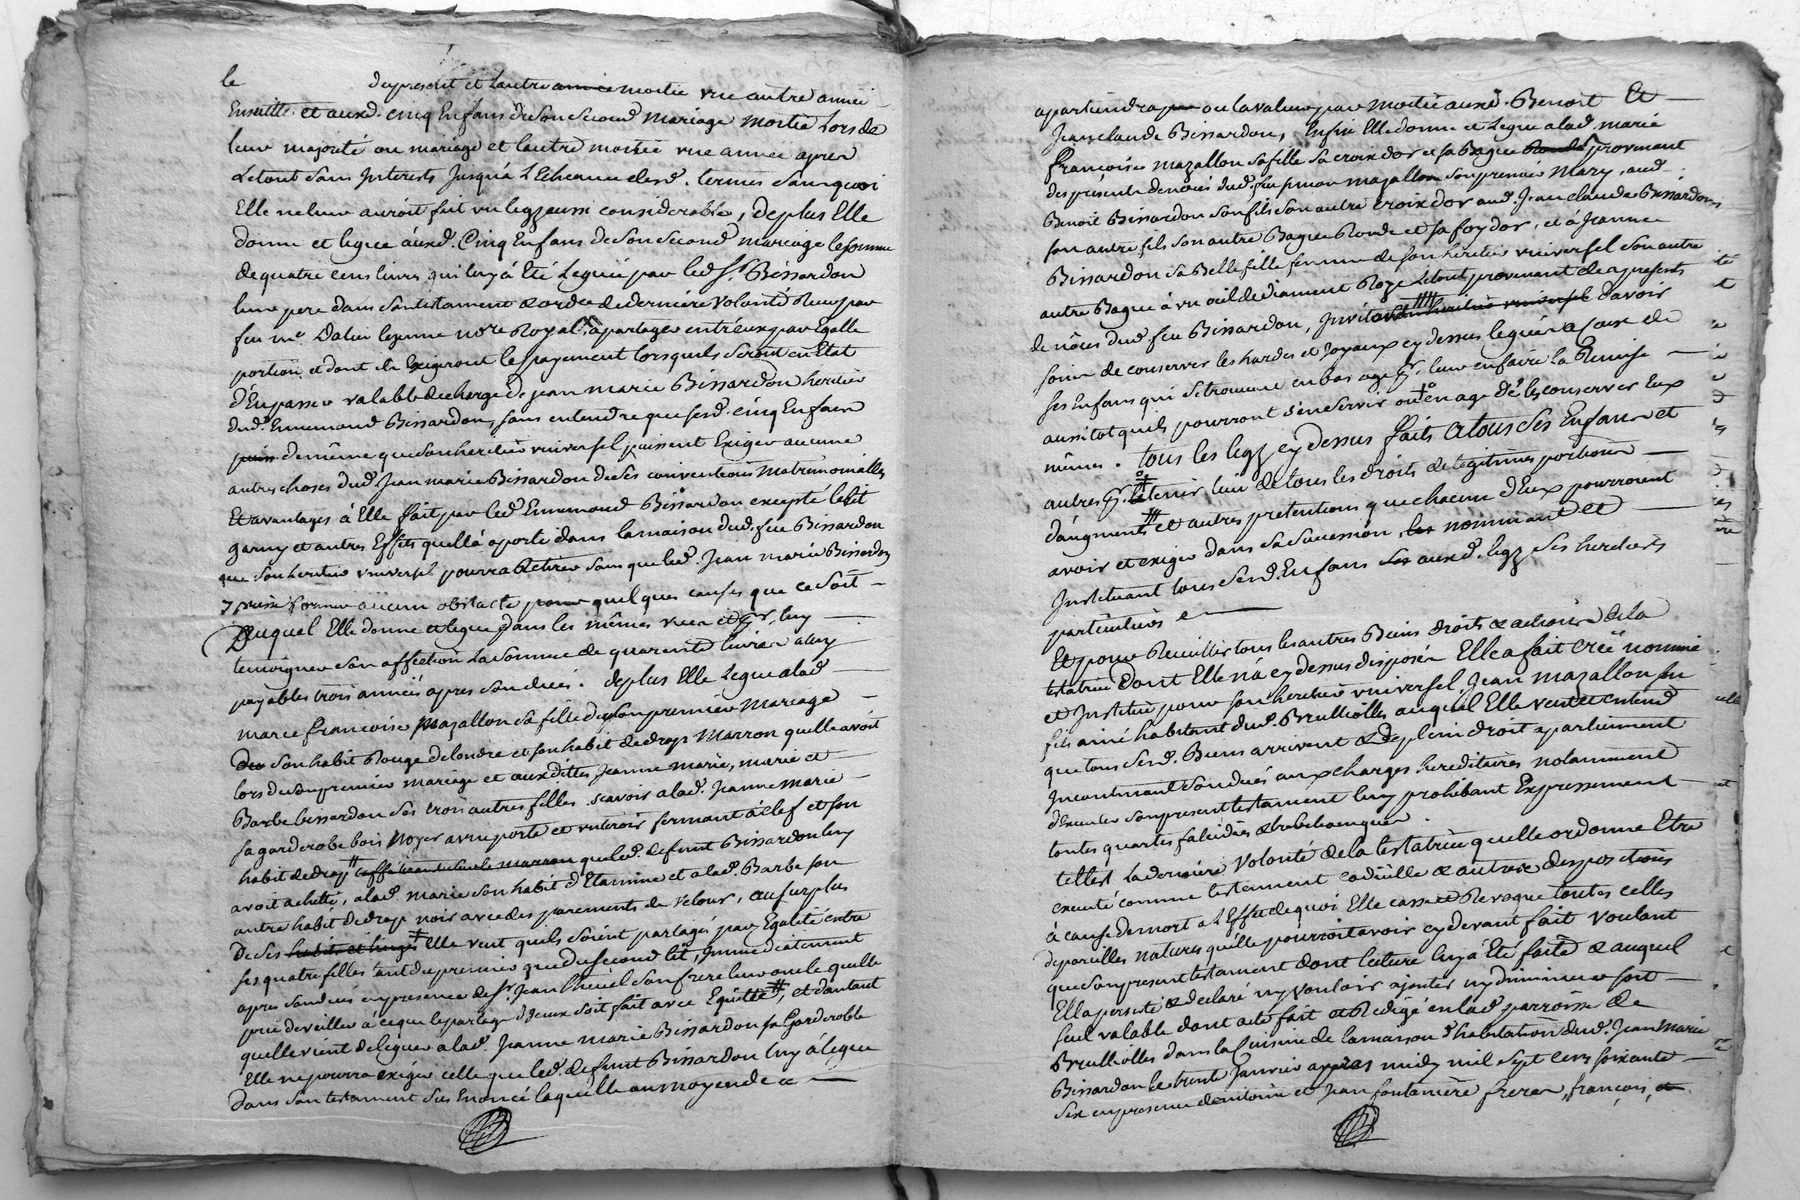 le du present et Lautre moitié une autre année
Ensuitte et auxd. cinq Enfans de son Second mariage moitié Lors de
leur majorité ou mariage et lautre moitié une année apres
Letout sans Interests Jusqu'a L'Echeance desd. termes Sans quoi
Elle ne leur auroit fait un legz aussi considerable, deplus Elle
donne et legue auxd. Cinq Enfans de Son Second mariage la somme
de quatre cens livres qui luy à Eté Leguée par led. Sr. Bissardon
leur pere dans son testament & ordre de derniere volonté Receu par
feu me. Dalier lejeune nore Royal, a partager entr'eux par Egalle
portion et dont ils Exigeront le payement lorsquils seront en Etat
d'En passer valable decharge de jean marie Bissardon heritier
dud. Ennemond Bissardon, sans entendre que sesd. cinq Enfans
de même que son heritier universel puissent Exiger aucune
autres choses dud. Jean marie Bissardon de ses conventions matrimonialles
Et avantages à Elle fait par led. Ennemond Bissardon excepté le lit
garny et autres Effets quella aporté dans la maison dud. feu Bissardon
que son heritier universel pourra Retirer sans que led. Jean marie Bissardon
y puisse former aucun obstacle pour quelques causes que ce soit
Auquel Elle donne et legue dans les mêmes vues et pr. luy
temoigner son affection La somme de quarente livres a luy
payables trois années apres son decés. deplus Elle Legue alad.
marie francoise Mazallon sa fille de son premier Mariage
son habit Rouge de londre et son habit de drap Marron quelle avoit
lors du son premier mariage et aux dittes Jeanne marie, marie et
Barbe bissardon ses trois autres filles. scavoir alad. Jeanne marie
sa garderobe bois Noyer a une porte et un tiroir fermant à clef et son
habit de drap couleur marron que led. defunt Bissardon luy
avoit achetté, alad. marie son habit d'Etamine et alad. Barbe son
autre habit de drap noir avec des parements de velour, au surplus
De ses habits et linges Elle veut quils soient partagés par Egalité entre
ses quatre filles tant du premier que du second lit, Immediatement
apres son decés en presence de Sr. Jean son frere leur oncle quelle
prie de veiller à ce que le partage d'Iceux soit fait avec Equitté, et d'autant
quelle vient de leguer alad. Jeanne marie Bissardon sa Garderobbe
Elle ne pourra exiger celle que led. defunt Bissardon luy à legué
dans son testament sus Enoncé laquelle au moyen de ce
apartiendra ou la valeur par moitié auxd. Benoit Et
Jean claude Bissardon, Enfin Elle donne et Legue alad. marie
francoise mazallon sa fille sa croix dor et sa Bague provenant
des présents de noces dud. feu mazallon son premier Mary, aud.
Benoit Bissardon son fils son autre croix dor aud. Jean claude Bissardon
son autre fils son autre Bague Ronde et sa foy dor, et à Jeanne
Bissardon sa Belle fille femme de son heritier universel son autre
autre Bague à un oeil de diament Roze Letout provenant des presents
de nôces dud. feu Bissardon, Invitant son heritier universel davoir
soin de conserver les hardes et Joyaux cy dessus legués a ceux de
ses Enfans qui se trouvent en bas age pr. leur en faire la Remise
aussitot quils pourront s'en servir ou en age de les conserver Eux
mêmes. Tous les legz cy dessus faits a tous ses Enfans et
autres pr. tenir lieu de tous les droits de legitimes portions
d'augments et autres pretentions que chacun d'Eux pourroient
avoir et exiger dans sa Succession, les nommant et
Instituant tous sesd. Enfans auxd. legz ses heritiers
particuliers
Et pour Recueillir tous les autres Biens droits & actions de la
testatrice dont Elle n'a cy dessus disposée Elle a fait créé nommé
et Institué pour son heritier universel Jean mazallon son
fils ainé habitant dud. Brulliolles auquel Elle veut et entend
que tous sesd. Biens arrivent & de plein droit apartiennent
Incontinant son decés aux charges hereditaires notamment
d'Executer son present testament luy prohibant Expressement
toutes quartes falcidies & trebellianiques.
telle est La derniere Volonté de la testatrice quelle ordonne Etre
executé comme testament codicille & autres dispositions
à cause de mort a L'Effet de quoi Elle casse et Revoque toutes celles
de pareilles natures quelle pourroit avoir cy devant fait voulant
que son present testament dont lecture luy à Eté faite & auquel
Ella persisté & declaré n'y vouloir ajouter ny diminuer soit
seul valable dont acte fait et Redigé en lad. parroisse de
Brulliolles dans la Cuisine de la maison d'habitation dud. Jean Marie
Bissardon le trente Janvier apres midy mil sept cens soixante
six en presence d'Antoine et Jean fontaniere freres, francois